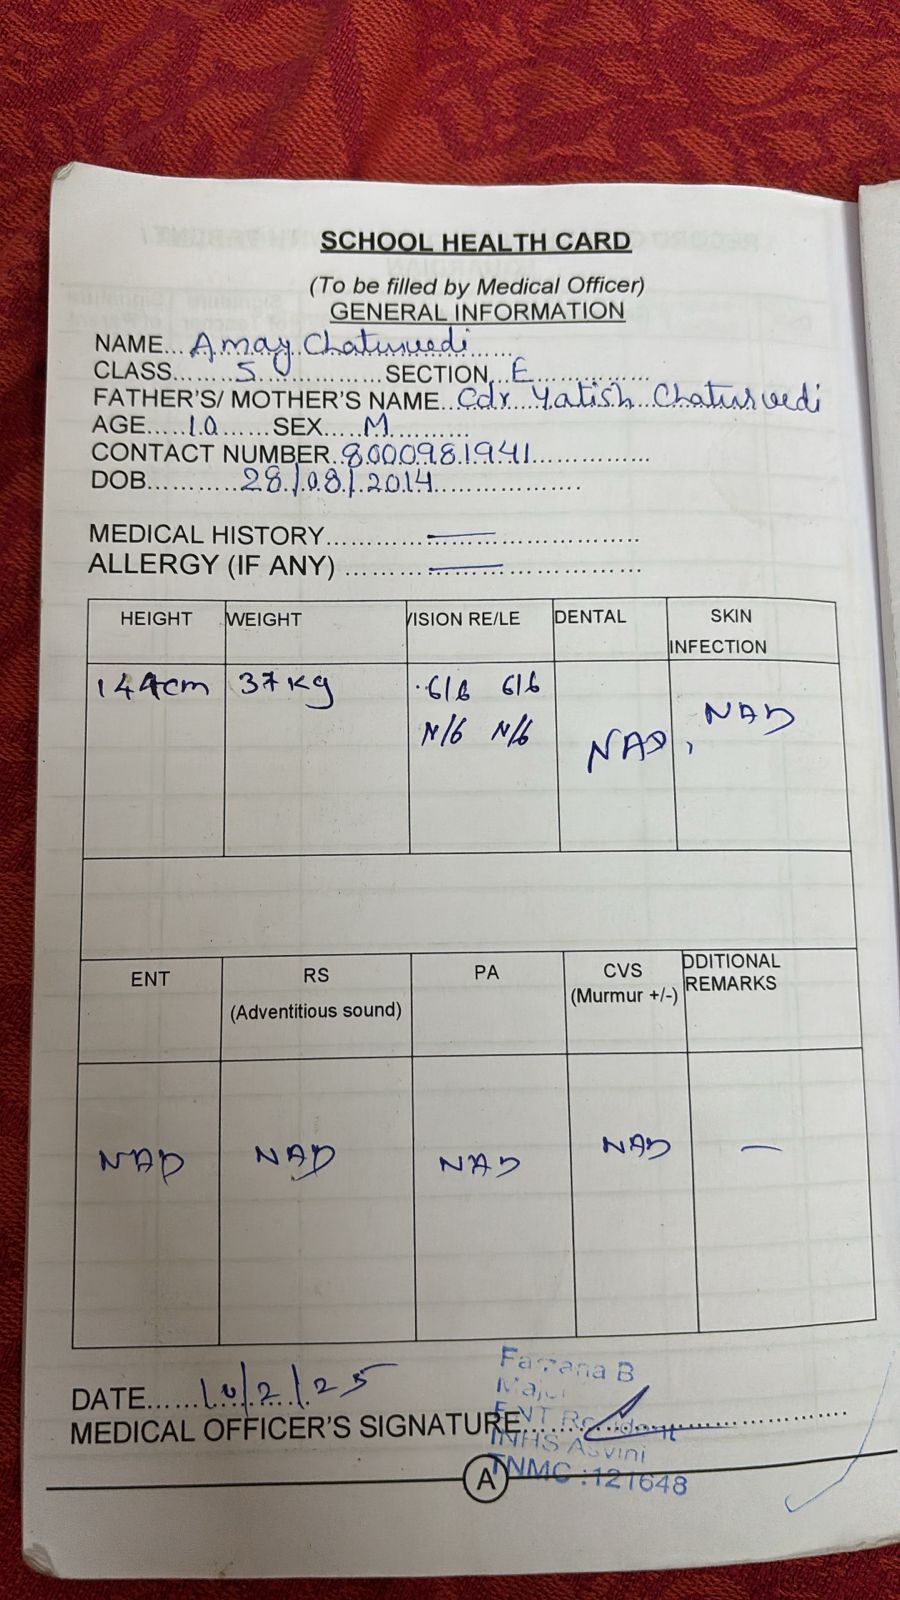 SCHOOL HEALTH CARD
(To be filled by Medical Officer)
GENERAL INFORMATION
NAME... Amay Chaturvedi
CLASS....... 5 ............... SECTION... E ...............
FATHER'S/ MOTHER'S NAME.. Cdr Yatish Chaturvedi
AGE..... 10 ...... SEX..... M ..........
CONTACT NUMBER.. 8000981941 ...............
DOB........... 28/08/2014 ..................
MEDICAL HISTORY............ — .....................
ALLERGY (IF ANY) ........... — .....................
HEIGHT WEIGHT VISION RE/LE DENTAL SKIN INFECTION
144cm 37Kg 6/6 6/6 NAD, NAD
N/6 N/6
ENT RS PA CVS DDITIONAL
(Adventitious sound) (Murmur +/-) REMARKS
NAD NAD NAD NAD —
DATE...... 10/2/25
Farzana B
Major
MEDICAL OFFICER'S SIGNATURE.....................
ENT Resident
INHS Asvini
TNMC :121648
A